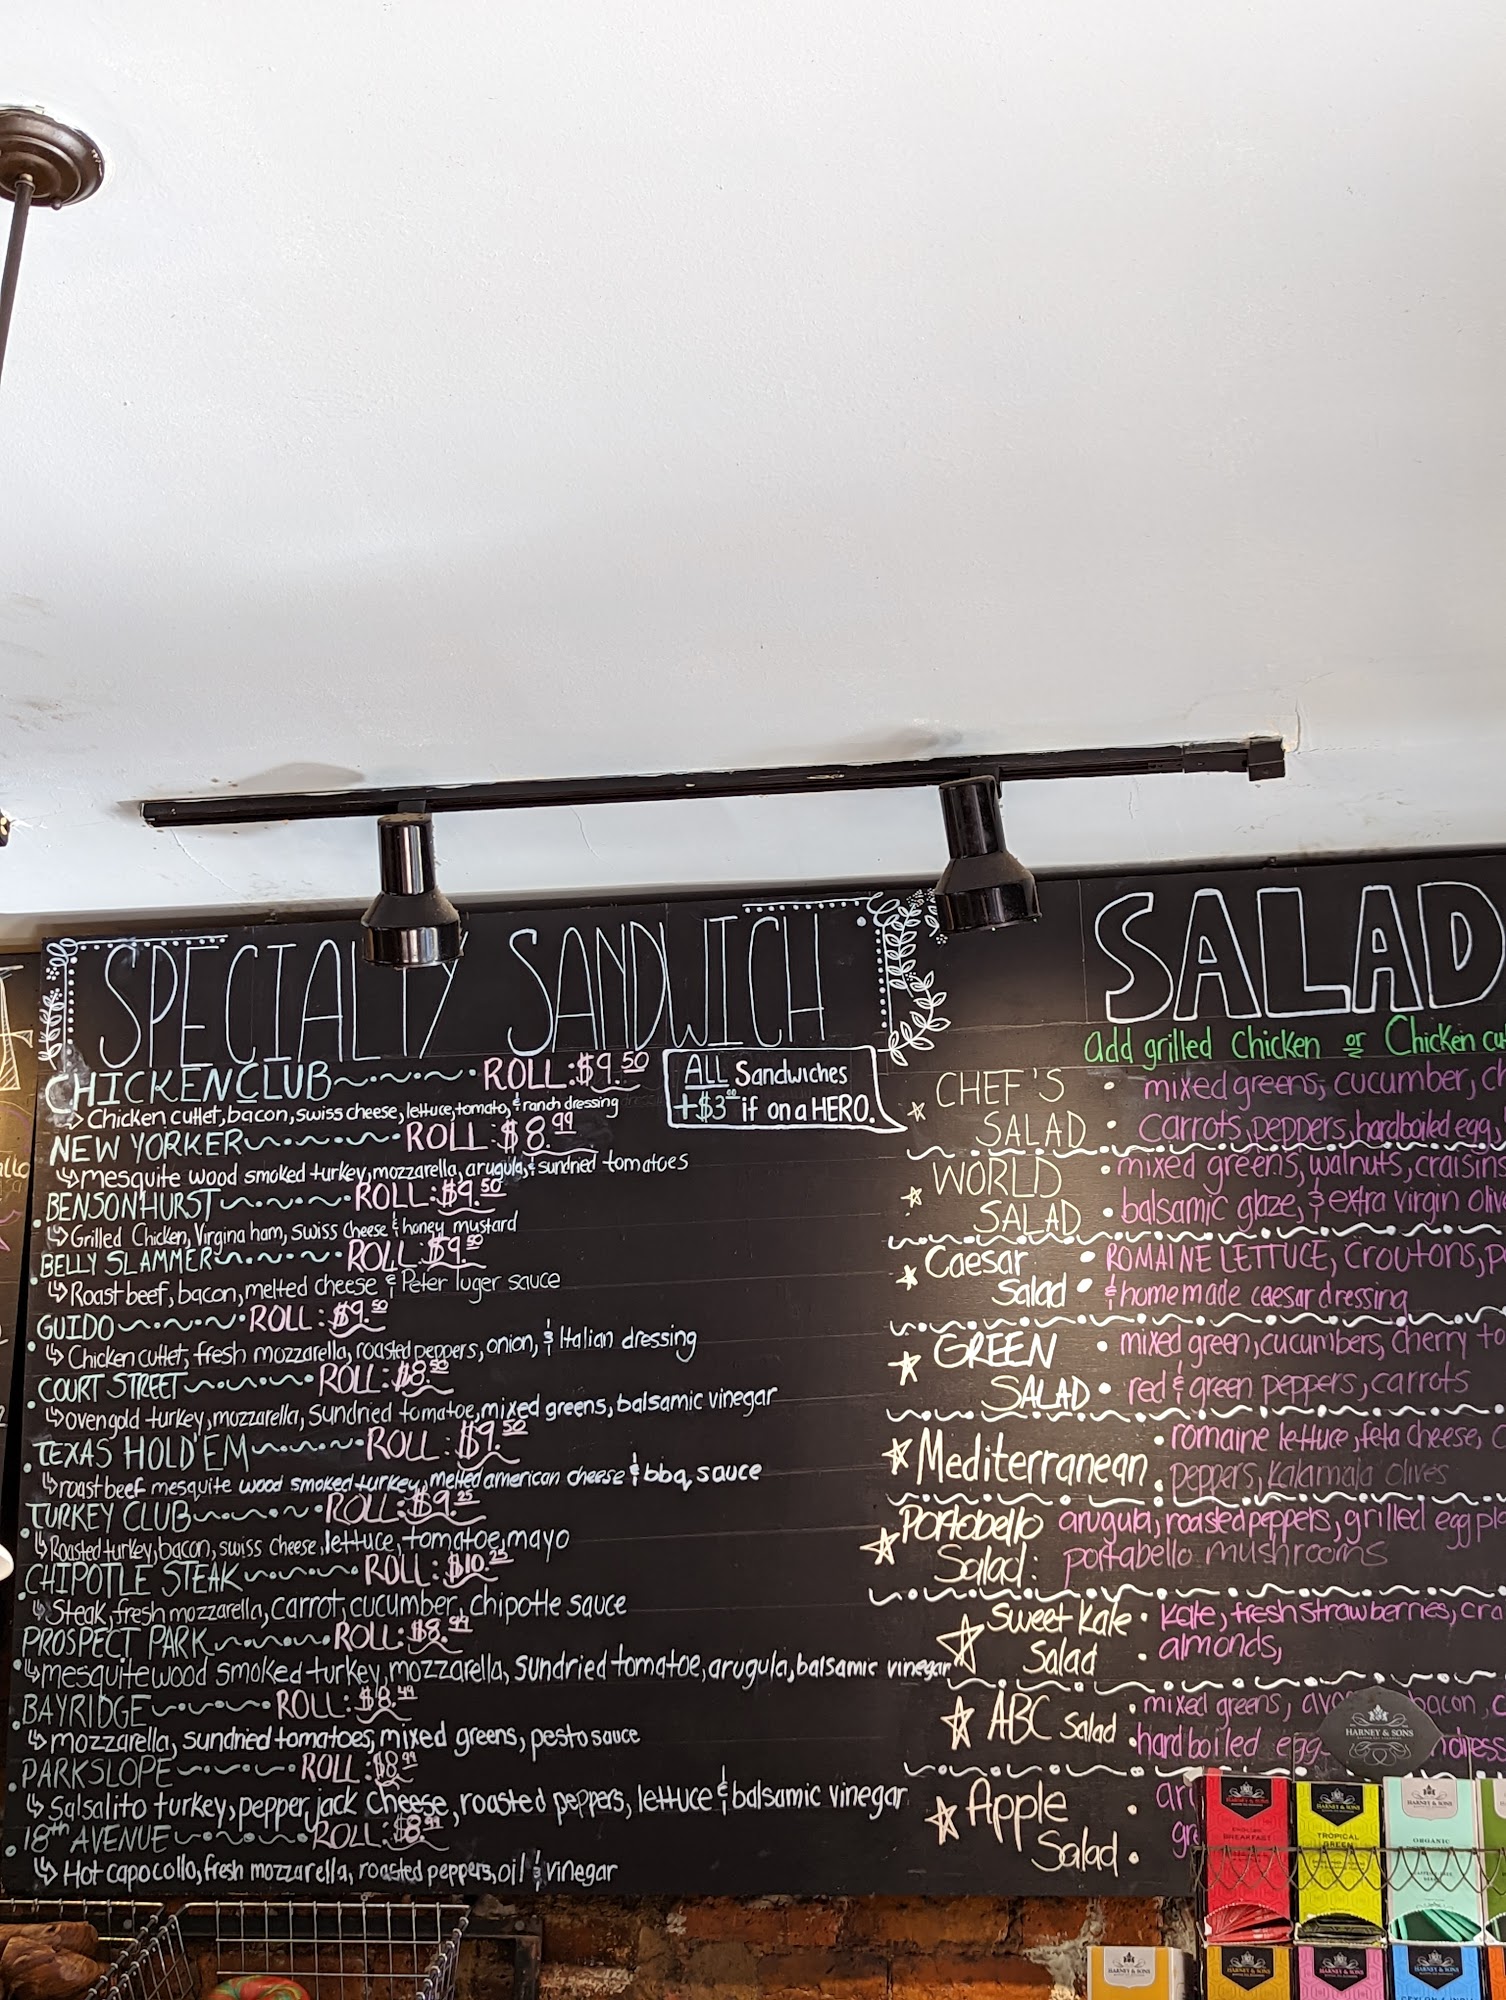 SPECIALTY SANDWICH
CHICKEN CLUB ROLL: $9.50
Chicken cutlet, bacon, swiss cheese, lettuce, tomato, & ranch dressing
ALL Sandwiches
+$3.00 if on a HERO.
NEW YORKER ROLL: $8.99
mesquite wood smoked turkey, mozzarella, arugula, & sundried tomatoes
BENSONHURST ROLL: $9.50
Grilled Chicken, Virgina ham, swiss cheese & honey mustard
BELLY SLAMMER ROLL: $9.50
Roast beef, bacon, melted cheese & Peter luger sauce
GUIDO ROLL: $9.50
Chicken cutlet, fresh mozzarella, roasted peppers, onion, & Italian dressing
COURT STREET ROLL: $8.50
ovengold turkey, mozzarella, sundried tomatoe, mixed greens, balsamic vinegar
TEXAS HOLD'EM ROLL: $9.50
roast beef mesquite wood smoked turkey, melted american cheese & bbq sauce
TURKEY CLUB ROLL: $9.25
Roasted turkey, bacon, swiss cheese, lettuce, tomatoe, mayo
CHIPOTLE STEAK ROLL: $10.25
Steak, fresh mozzarella, carrot, cucumber, chipotle sauce
PROSPECT PARK ROLL: $8.99
mesquite wood smoked turkey, mozzarella, sundried tomatoe, arugula, balsamic vinegar
BAYRIDGE ROLL: $8.49
mozzarella, sundried tomatoes, mixed greens, pesto sauce
PARKSLOPE ROLL: $8.99
Salsalito turkey, pepper jack cheese, roasted peppers, lettuce & balsamic vinegar
18th AVENUE ROLL: $8.99
Hot capocollo, fresh mozzarella, roasted peppers, oil & vinegar
SALAD
add grilled chicken or Chicken cu
CHEF'S mixed greens, cucumber, ch
SALAD carrots, peppers, hardboiled egg,
WORLD mixed greens, walnuts, craisins
SALAD balsamic glaze, & extra virgin oliv
Caesar ROMAINE LETTUCE, croutons, p
Salad & homemade caesar dressing
GREEN mixed green, cucumbers, cherry to
SALAD red & green peppers, carrots
Mediterranean romaine lettuce, feta cheese, c
peppers, Kalamala olives
Portobello arugula, roasted peppers, grilled eggpl
Salad: portabello mushrooms
Sweet Kale Kale, fresh strawberries, cra
Salad almonds,
ABC Salad mixed greens, avo bacon, c
hard boiled egg dress
Apple ar
Salad gr
HARNEY & SONS
HARNEY & SONS
ENGLISH
BREAKFAST
HARNEY & SONS
TROPICAL
GREEN
ORGANIC
HARNEY & SONS
HARNEY & SONS
HARNEY & SONS
HARNEY & SONS